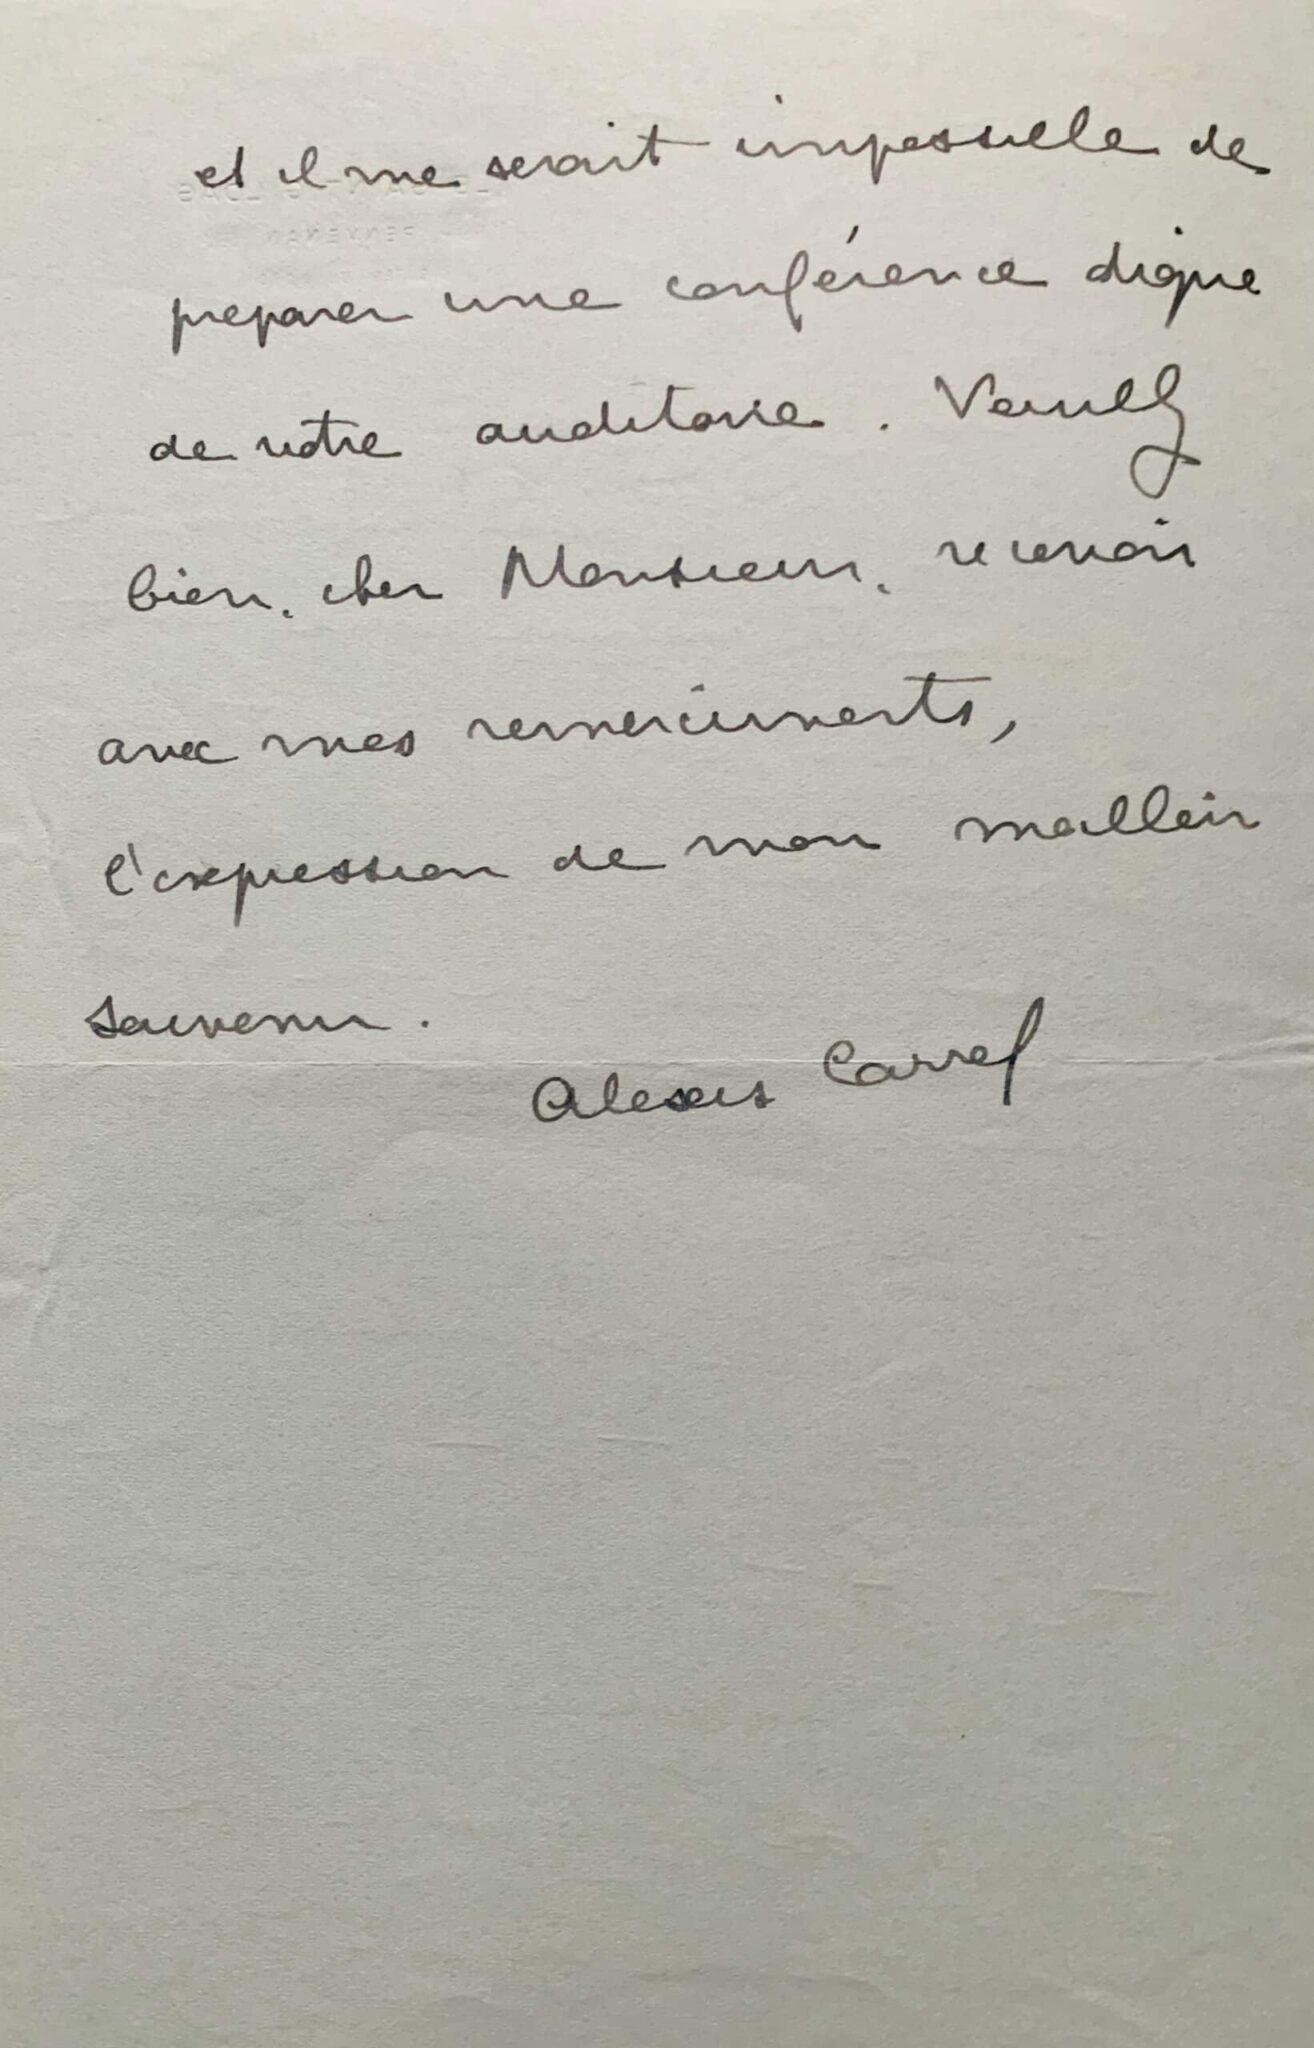 et il me serait impossible de
preparer une conférence digne
de votre auditoire. Veuillez
bien, cher Monsieur, recevoir
avec mes remerciements,
l'expression de mon meilleur
souvenir.
Alexis Carrel
PENVENAN